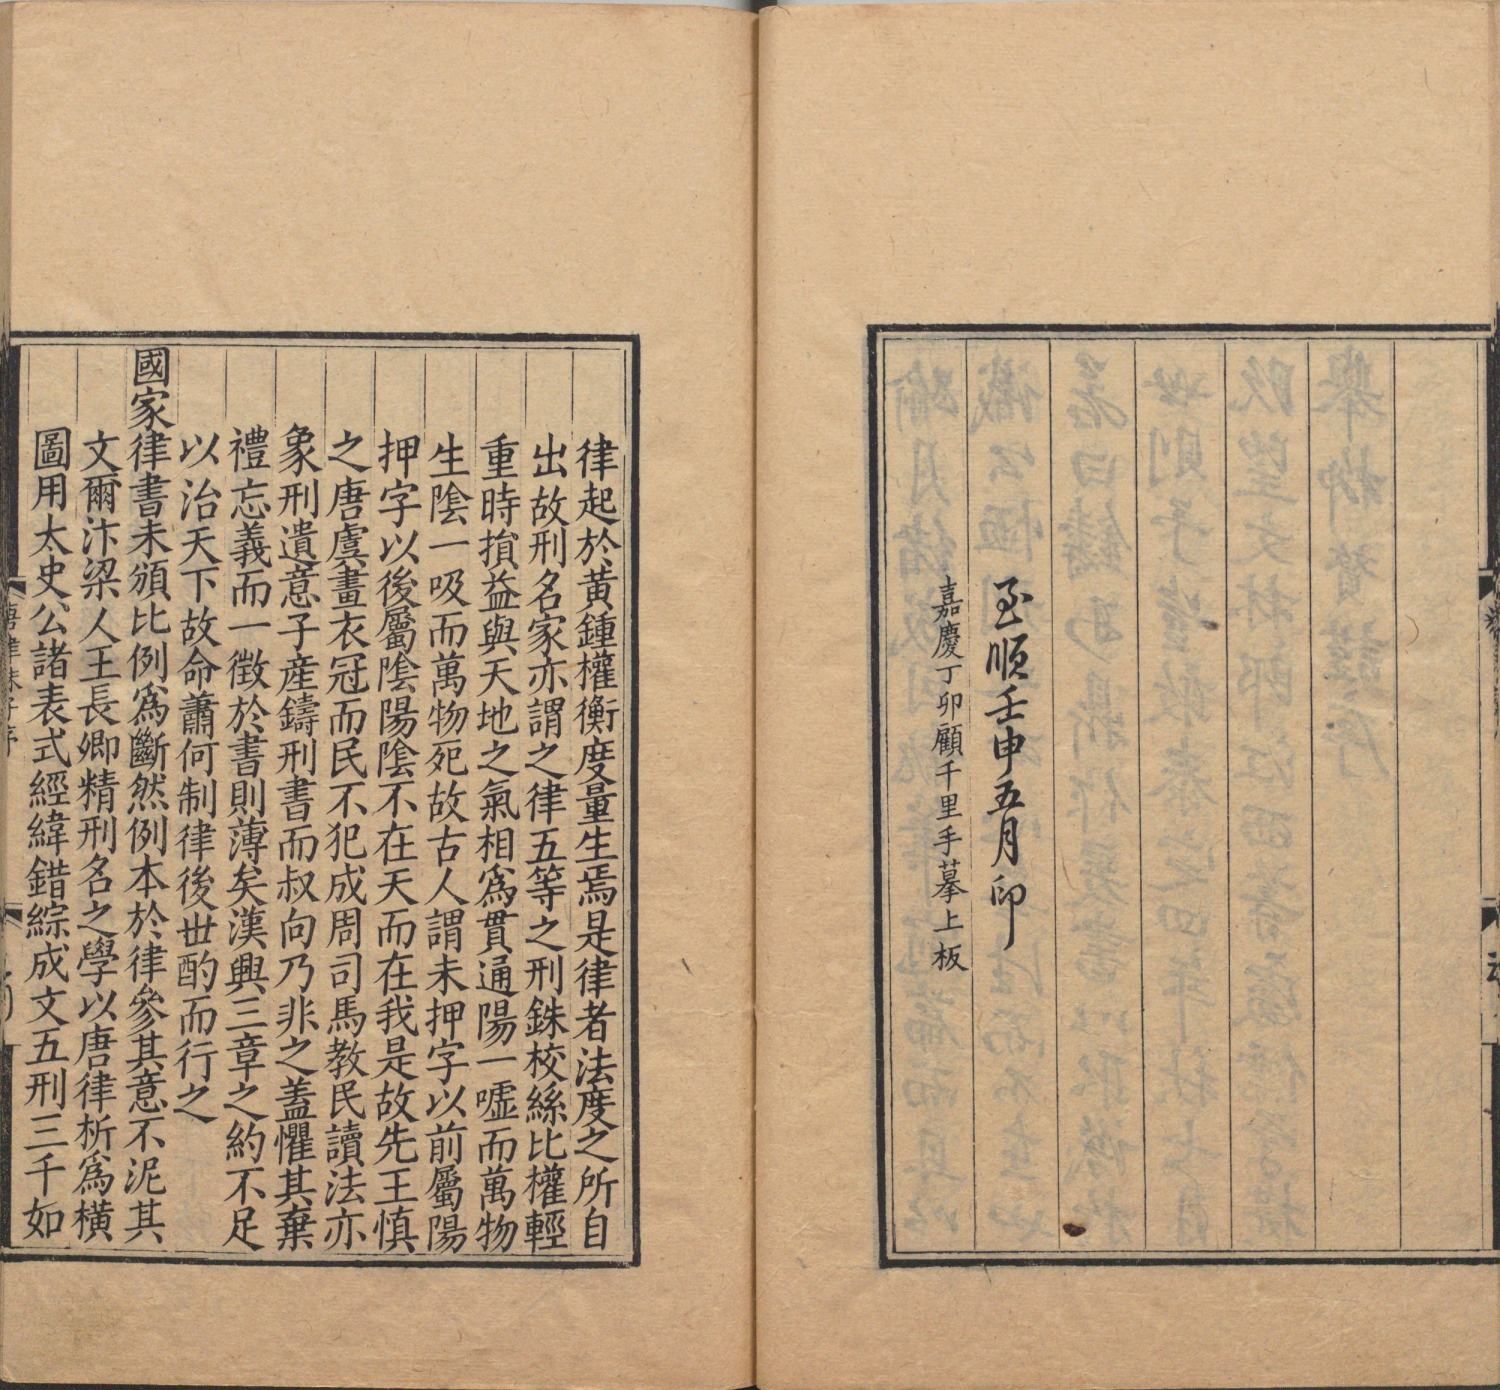 至順壬申五月印
嘉慶丁卯顧千里手摹上板
律起於黃鍾權衡度量生焉是律者法度之所自
出故刑名家亦謂之律五等之刑銖校絲比權輕
重時損益與天地之氣相爲貫通陽一噓而萬物
生陰一吸而萬物死故古人謂未押字以前屬陽
押字以後屬陰陽陰不在天而在我是故先王慎
之唐虞畫衣冠而民不犯成周司馬教民讀法亦
象刑遺意子産鑄刑書而叔向乃非之蓋懼其棄
禮忘義而一徵於書則薄矣漢興三章之約不足
以治天下故命蕭何制律後世酌而行之
國家律書未頒比例爲斷然例本於律參其意不泥其
文爾汴梁人王長卿精刑名之學以唐律析爲橫
圖用太史公諸表式經緯錯綜成文五刑三千如